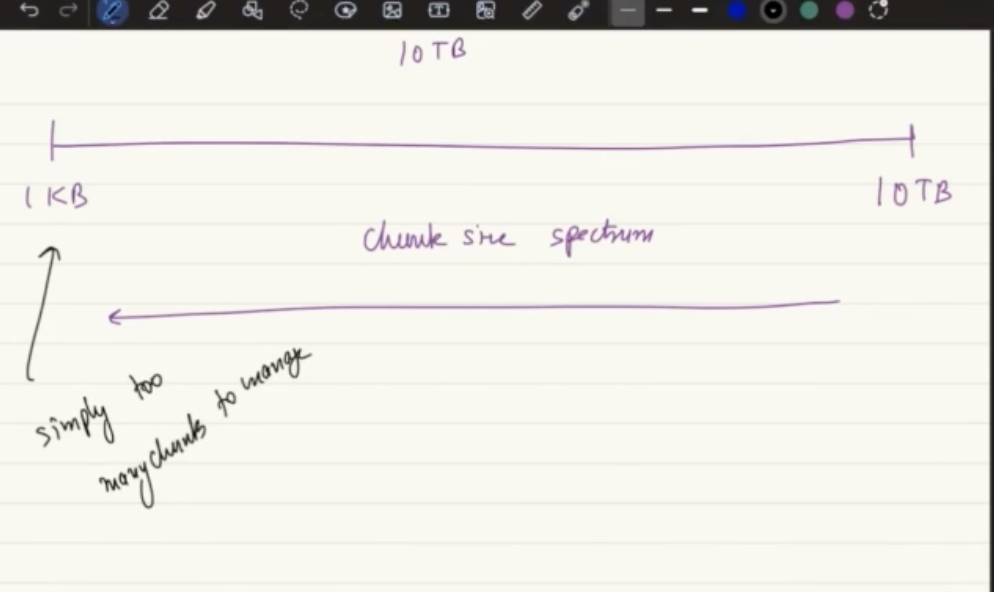 10 TB
1 KB
10 TB
chunk size spectrum
simply too
many chunks to manage